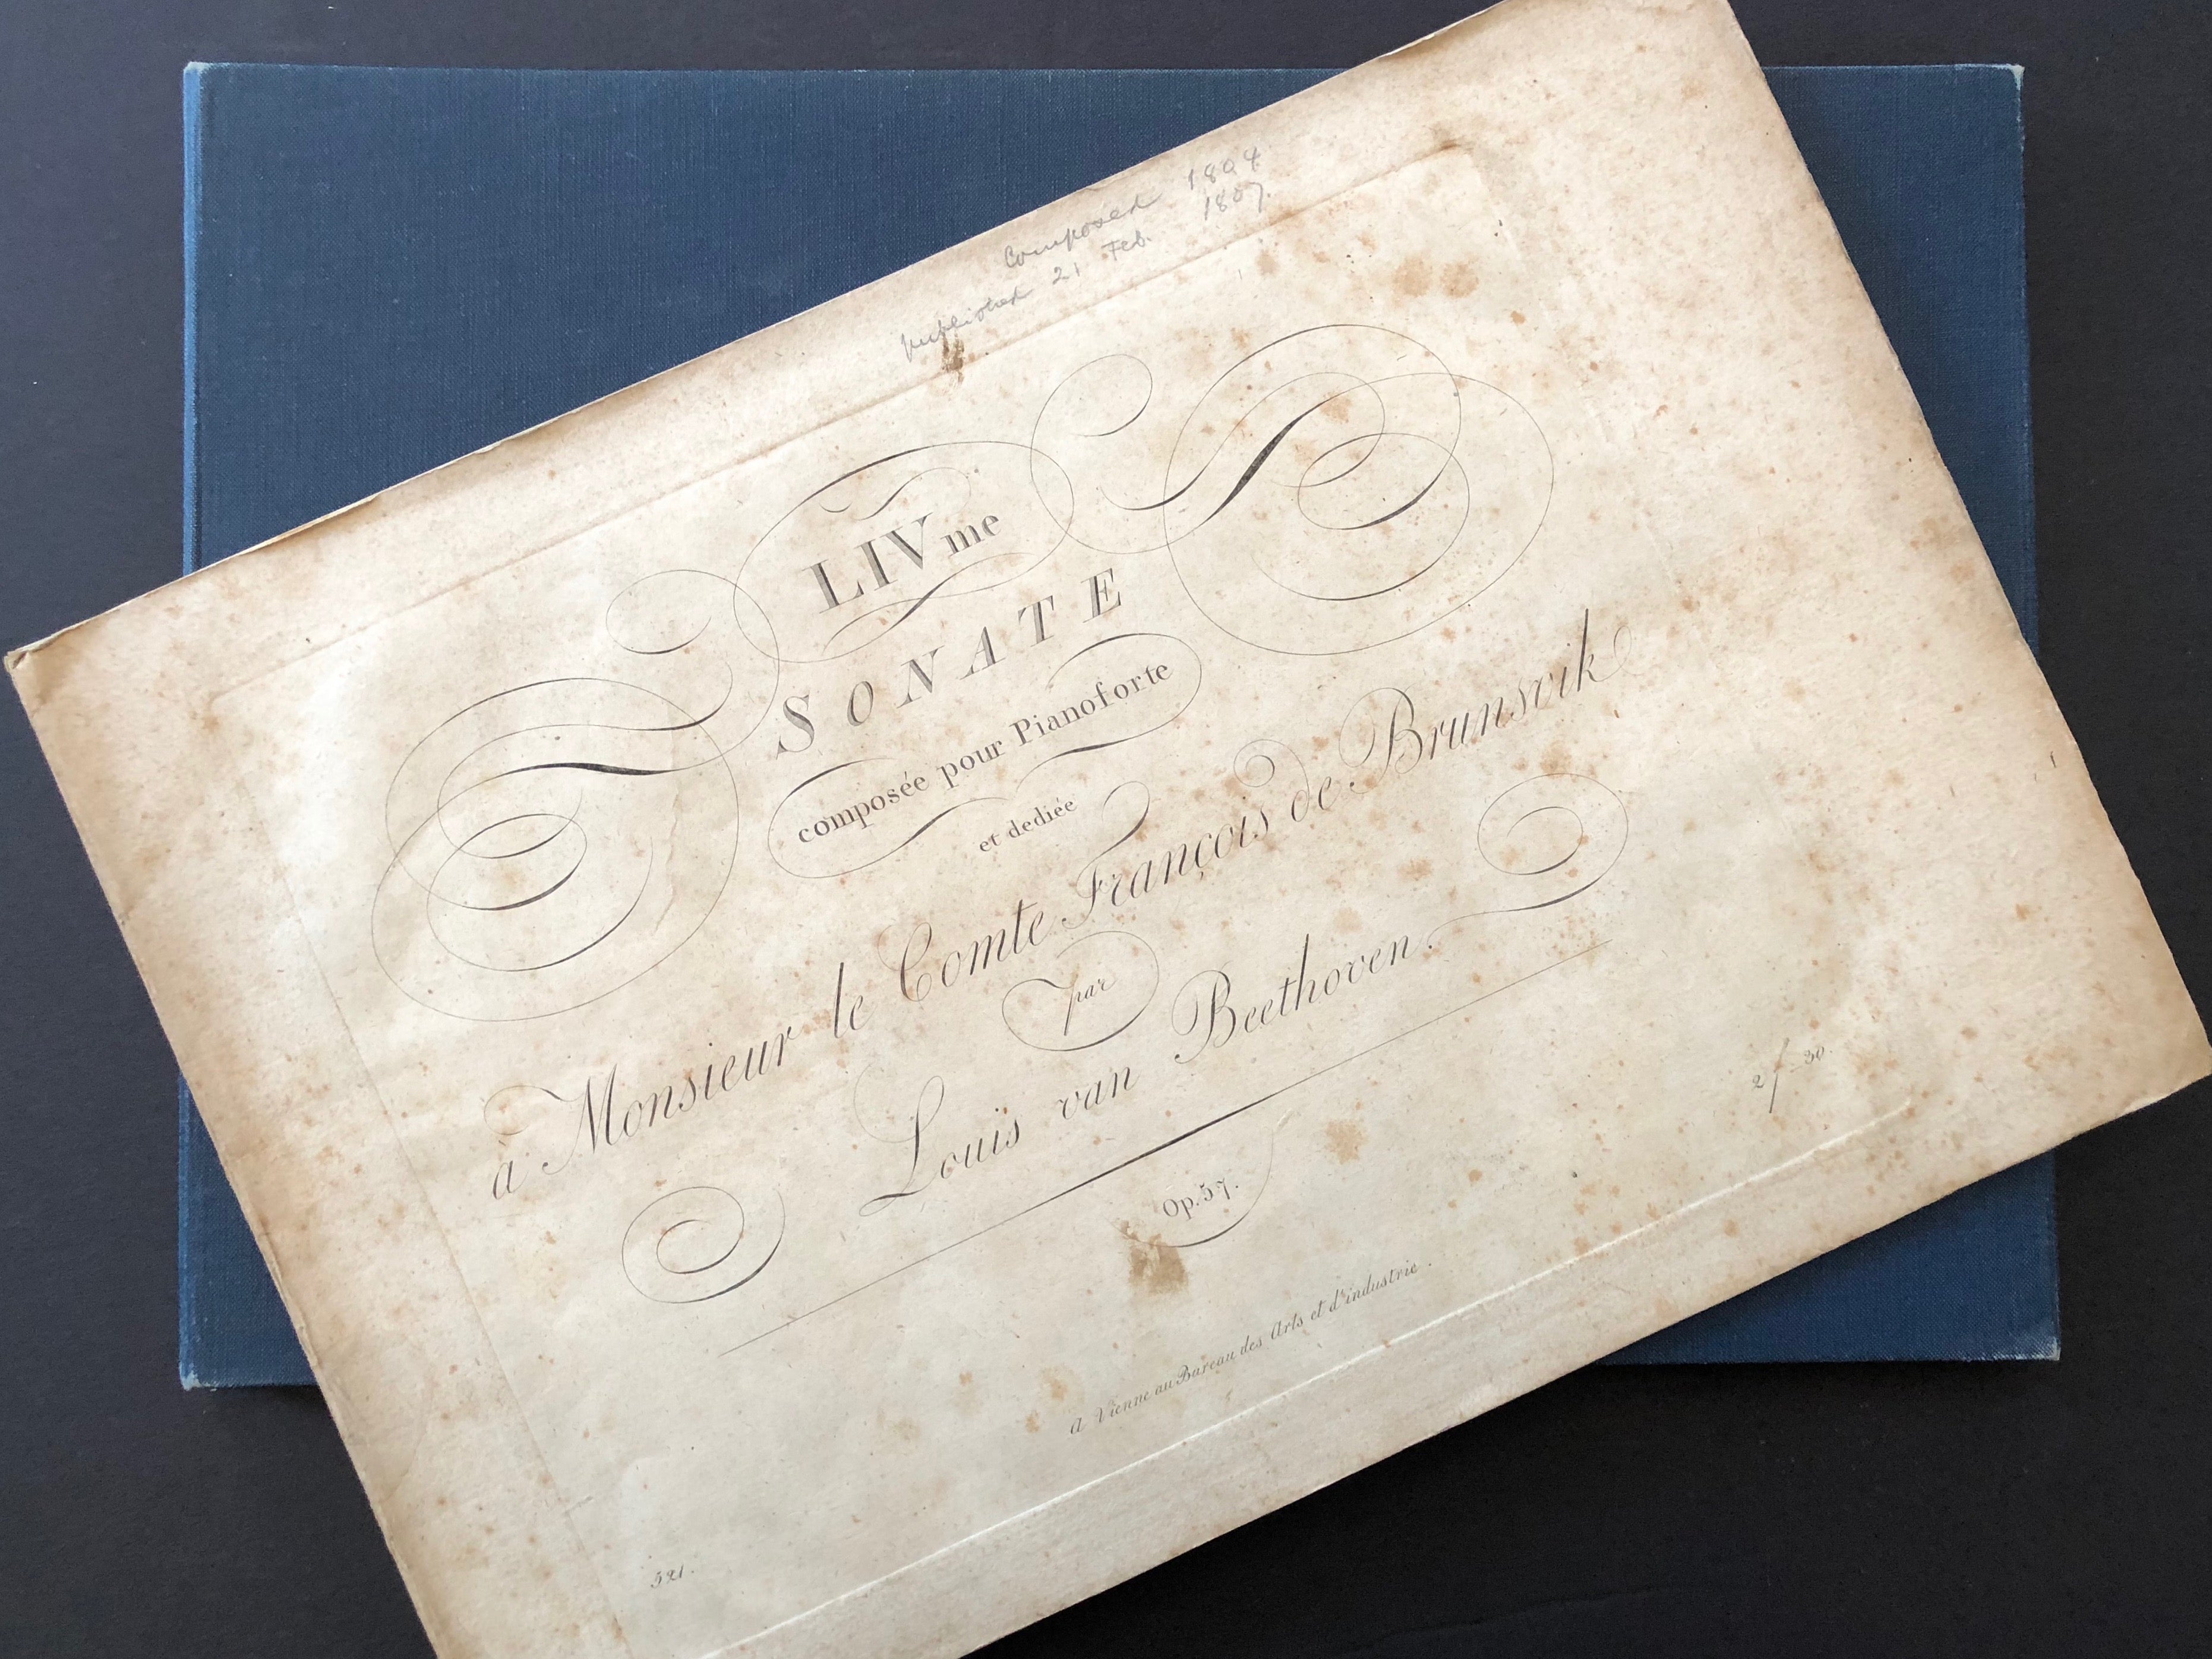 Composed 1804
published 21 Feb. 1807.
LIVme
SONATE
composée pour Pianoforte
et dediée
à Monsieur le Comte François de Brunsvik
par
Louis van Beethoven.
Op. 57.
2f_30.
A Vienne au Bureau des Arts et d'industrie.
521.